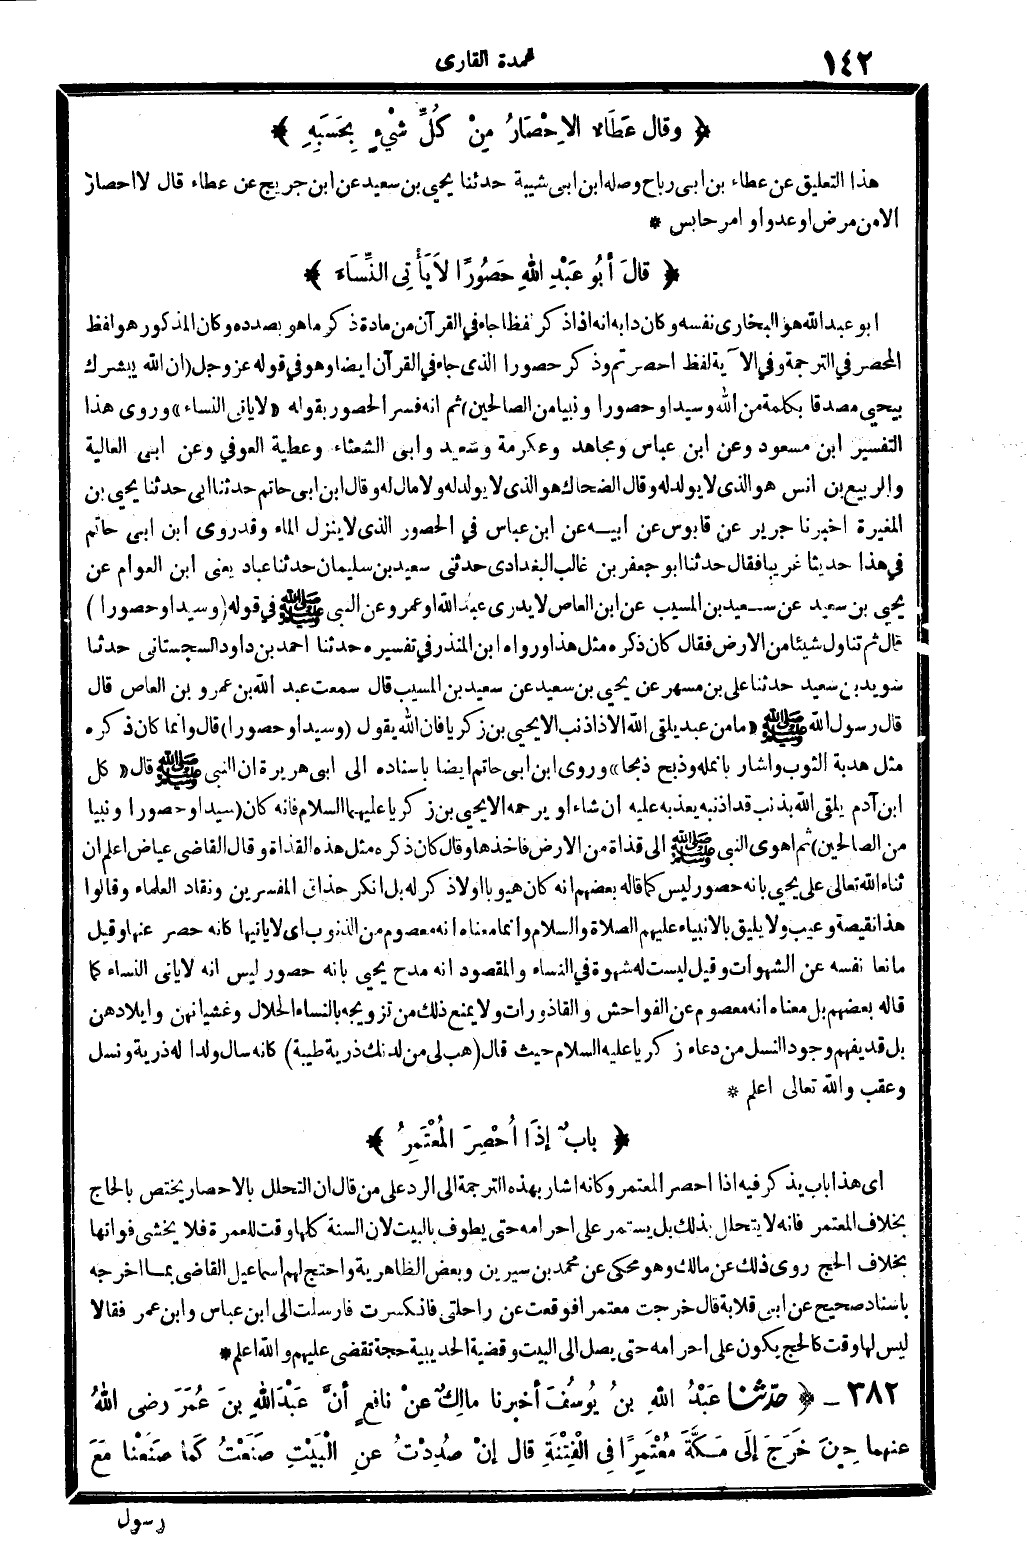 ١٤٢
عمدة القارى
﴿ وقال عَطَاء الاِحْصَارُ مِنْ كُلِّ شَيْءٍ بِحَسَبِهِ ﴾
هذا التعليق عن عطاء بن ابى رباح وصله ابن ابى شيبة حدثنا يحيى بن سعيد عن ابن جريج عن عطاء قال لا احصار
الا من مرض او عدو او امر حابس *
﴿ قالَ أَبُو عَبْدِ اللهِ حَصُورًا لاَ يَأْتِى النِّسَاءَ ﴾
ابو عبد الله هو البخارى نفسه وكان دابه انه اذا ذكر لفظا جاء فى القرآن من مادة ذكر ما هو بصدده وكان المذكور هو لفظ
المحصر في الترجمة وفي الآية لفظ احصرتم وذكر حصورا الذى جاء فى القرآن ايضا وهو في قوله عز وجل (ان الله يبشرك
بيحيى مصدقا بكلمة من الله وسيدا وحصورا ونبيا من الصالحين) ثم انه فسر الحصور بقوله «لا ياتى النساء» وروى هذا
التفسير ابن مسعود وعن ابن عباس ومجاهد وعكرمة وسعيد وابى الشعثاء وعطية العوفي وعن ابى العالية
والربيع بن انس هو الذى لا يولد له وقال الضحاك هو الذى لا يولد له ولا مال له وقال ابن ابى حاتم حدثنا ابى حدثنا يحيى بن
المغيرة اخبرنا جرير عن قابوس عن ابيه عن ابن عباس في الحصور الذى لا ينزل الماء وقد روى ابن ابى حاتم
في هذا حديثا غريبا فقال حدثنا ابو جعفر بن غالب البغدادى حدثنى سعيد بن سليمان حدثنا عباد يعنى ابن العوام عن
يحيى بن سعيد عن سعيد بن المسيب عن ابن العاص لا يدرى عبد الله او عمرو عن النبى ﷺ في قوله (وسيدا وحصورا)
قال ثم تناول شيئا من الارض فقال كان ذكره مثل هذا ورواه ابن المنذر في تفسيره حدثنا احمد بن داود السجستانى حدثنا
سويد بن سعيد حدثنا على بن مسهر عن يحيى بن سعيد عن سعيد بن المسيب قال سمعت عبد الله بن عمرو بن العاص قال
قال رسول الله ﷺ «ما من عبد يلقى الله الا ذا ذنب الا يحيى بن زكريا فان الله يقول (وسيدا وحصورا) قال وانما كان ذكره
مثل هدبة الثوب واشار بانمله وذبح ذبحا» وروى ابن ابى حاتم ايضا باسناده الى ابى هريرة ان النبى ﷺ قال «كل
ابن آدم يلقى الله بذنب قد اذنبه يعذبه عليه ان شاء او يرحمه الا يحيى بن زكريا عليهما السلام فانه كان (سيدا وحصورا ونبيا
من الصالحين) ثم اهوى النبى ﷺ الى قذاة من الارض فاخذها وقال كان ذكره مثل هذه القذاة وقال القاضى عياض اعلم ان
ثناء الله تعالى على يحيى بانه حصور ليس كما قاله بعضهم انه كان هيوبا او لا ذكر له بل انكر حذاق المفسرين ونقاد العلماء وقالوا
هذا نقيصة وعيب ولا يليق بالانبياء عليهم الصلاة والسلام وانما معناه انه معصوم من الذنوب اى لا ياتيها كانه حصر عنها وقيل
مانعا نفسه عن الشهوات وقيل ليست له شهوة في النساء والمقصود انه مدح يحيى بانه حصور ليس انه لا ياتى النساء كما
قاله بعضهم بل معناه انه معصوم عن الفواحش والقاذورات ولا يمنع ذلك من تزويجه بالنساء الحلال وغشيانهن وايلادهن
بل قد يفهم وجود النسل من دعاء زكريا عليه السلام حيث قال (هب لى من لدنك ذرية طيبة) كانه سال ولدا له ذرية ونسل
وعقب والله تعالى اعلم *
﴿ بابٌ إذَا أُحْصِرَ المُعْتَمِرُ ﴾
اى هذا باب يذكر فيه اذا احصر المعتمر وكانه اشار بهذه الترجمة الى الرد على من قال ان التحلل بالاحصار يختص بالحاج
بخلاف المعتمر فانه لا يتحلل بذلك بل يستمر على احرامه حتى يطوف بالبيت لان السنة كلها وقت للعمرة فلا يخشى فواتها
بخلاف الحج روى ذلك عن مالك وهو محكى عن محمد بن سيرين وبعض الظاهرية واحتج لهم اسماعيل القاضى بما اخرجه
باسناد صحيح عن ابى قلابة قال خرجت معتمرا فوقعت عن راحلتى فانكسرت فارسلت الى ابن عباس وابن عمر فقالا
ليس لها وقت كالحج يكون على احرامه حتى يصل الى البيت وقضية الحديبية حجة تقضى عليهم والله اعلم *
٣٨٢ - ﴿ حدّثنا عَبْدُ اللهِ بنُ يُوسُفَ أخبرنا مالِكٌ عنْ نافِعٍ أنَّ عَبْدَاللهِ بنَ عُمَرَ رضى اللهُ
عنهما حِينَ خَرَجَ إلَى مَكَّةَ مُعْتَمِرًا فِى الْفِتْنَةِ قال إنْ صُدِدْتُ عنِ الْبَيْتِ صَنَعْتُ كَمَا صَنَعْنا مَعَ
رسول